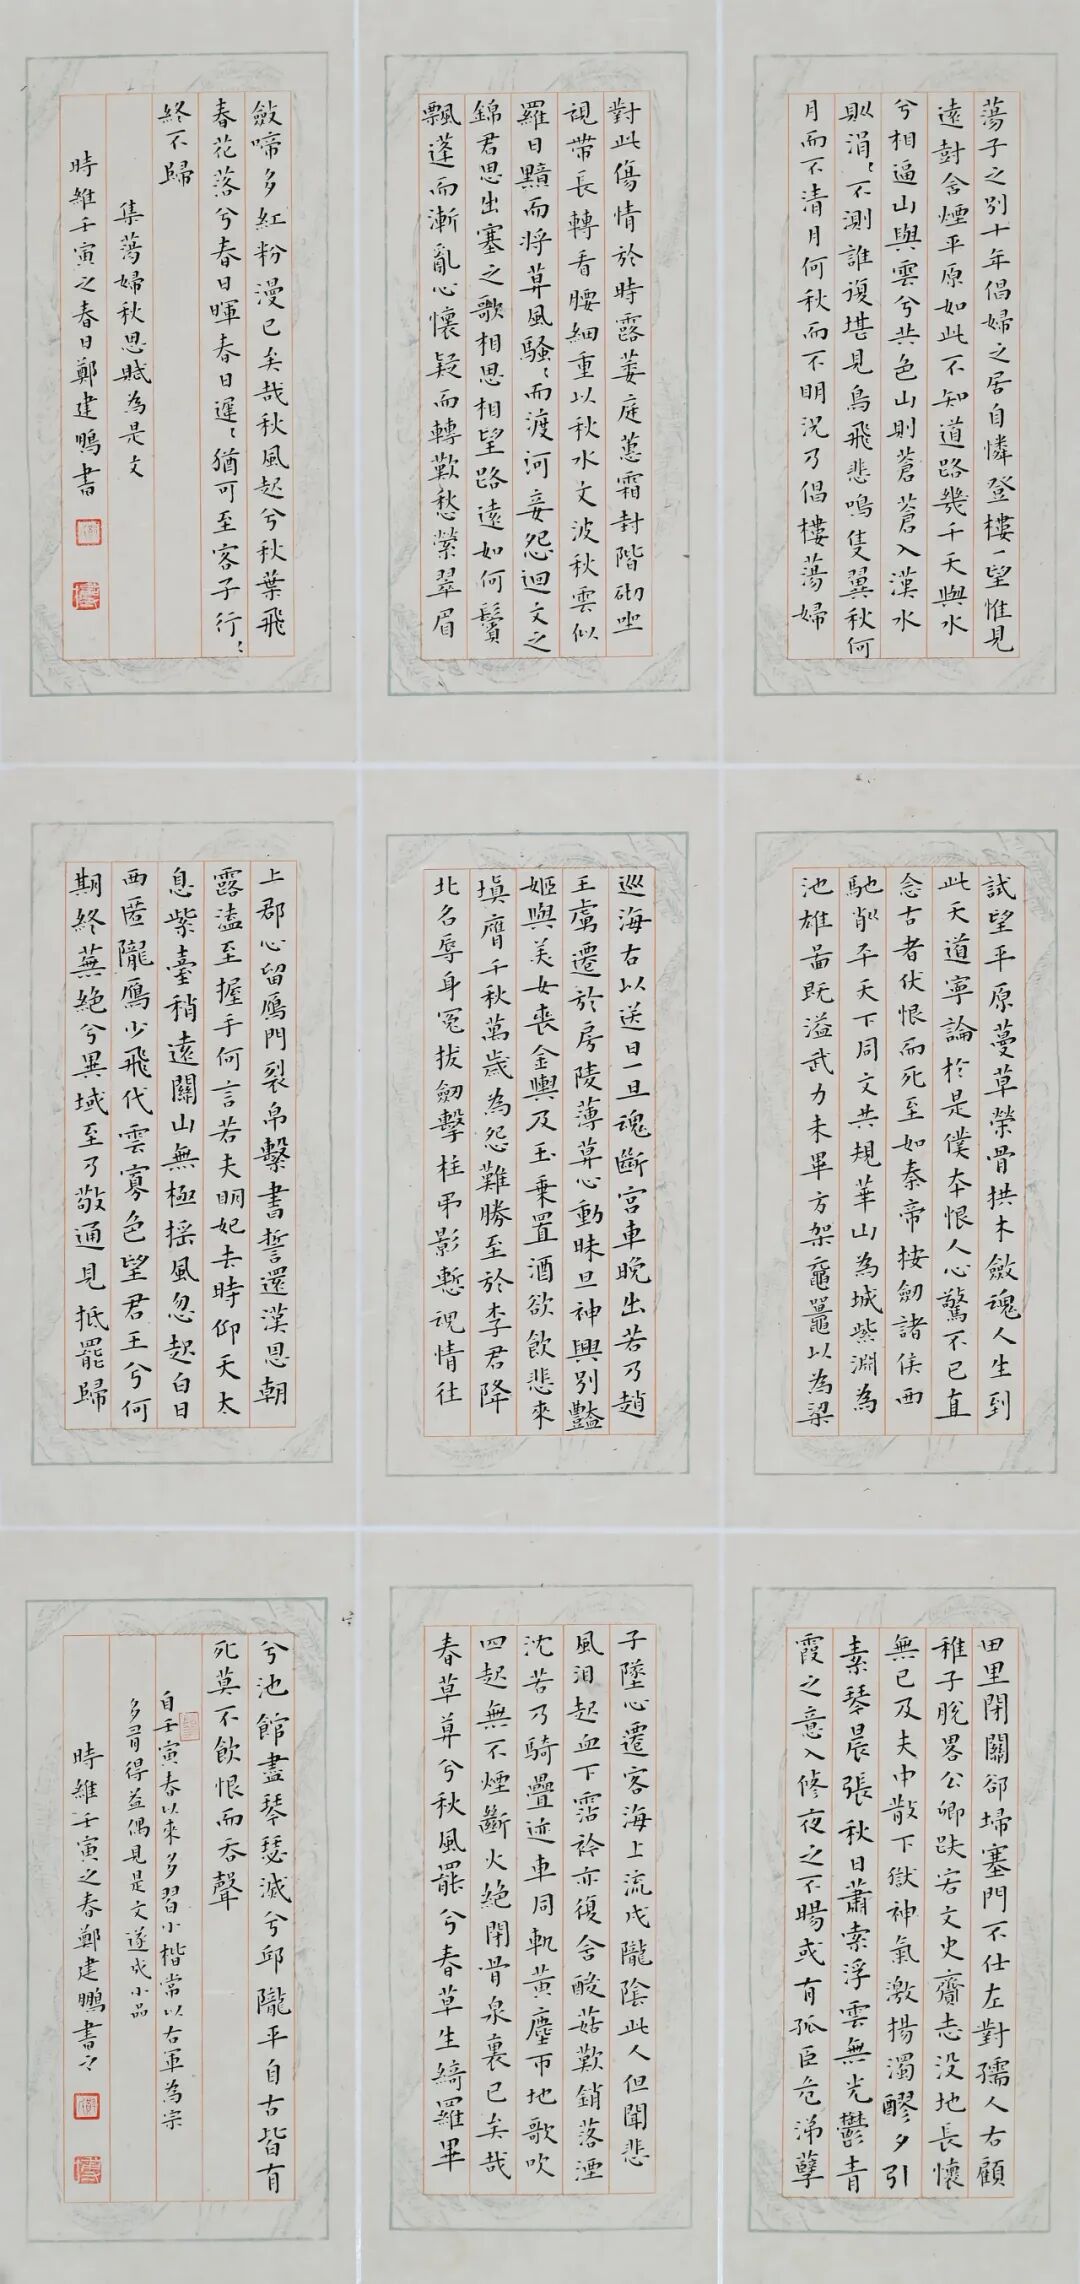 蕩子之別十年倡婦之居自憐登樓一望惟見
遠尌含煙平原如此不知道路幾千天與水
兮相逼山與雲兮共色山則蒼蒼入漢水
則涓〻不測誰復堪見鳥飛悲鳴隻翼秋何
月而不清月何秋而不明況乃倡樓蕩婦
對此傷情於時露萎庭蕙霜封階砌坐
視帶長轉看腰細重以秋水文波秋雲似
羅日黯而將暮風騷〻而渡河妾怨迴文之
錦君思出塞之歌相思相望路遠如何鬢
飄蓬而漸亂心懷疑而轉歎愁縈翠眉
斂啼多紅粉漫已矣哉秋風起兮秋葉飛
春花落兮春日暉春日遲〻猶可至客子行〻
終不歸
集蕩婦秋思賦為是文
時維壬寅之春日鄭建鵬書
試望平原蔓草縈骨拱木斂魂人生到
此天道寧論於是僕本恨人心驚不已直
念古者伏恨而死至如秦帝按劒諸侯西
馳削平天下同文共規華山為城紫淵為
池雄啚既溢武力未畢方架黿鼉以為梁
巡海右以送日一旦魂斷宮車晚出若乃趙
王虜遷於房陵薄暮心動昧旦神興別豔
姬與美女喪金輿及玉乗置酒欲飲悲來
塡膺千秋萬歲為怨難勝至於李君降
北名辱身冤拔劒擊柱弔影慙魂情往
上郡心留鴈門裂帛繫書誓還漢恩朝
露溘至握手何言若夫明妃去時仰天太
息紫臺稍遠關山無極揺風忽起白日
西匿隴鴈少飛代雲寡色望君王兮何
期終蕪絕兮異域至乃敬通見抵罷歸
田里閉關郤埽塞門不仕左對孺人右顧
稚子脫畧公卿跌宕文史齎志没地長懷
無已及夫中散下獄神氣激揚濁醪夕引
素琴晨張秋日蕭索浮雲無光鬱青
霞之意入修夜之不暘或有孤臣危涕孽
子墜心遷客海上流戍隴陰此人但聞悲
風汩起血下霑衿亦復含酸茹歎銷落湮
沈若乃騎疊迹車同軌黃塵帀地歌吹
四起無不煙斷火絕閉骨泉裏已矣哉
春草暮兮秋風罷兮春草生綺羅畢
兮池館盡琴瑟滅兮邱隴平自古皆有
死莫不飲恨而吞聲
自壬寅春以來多習小楷當以右軍為宗
多有得益偶見是文遂成小品
時維壬寅之春鄭建鵬書之